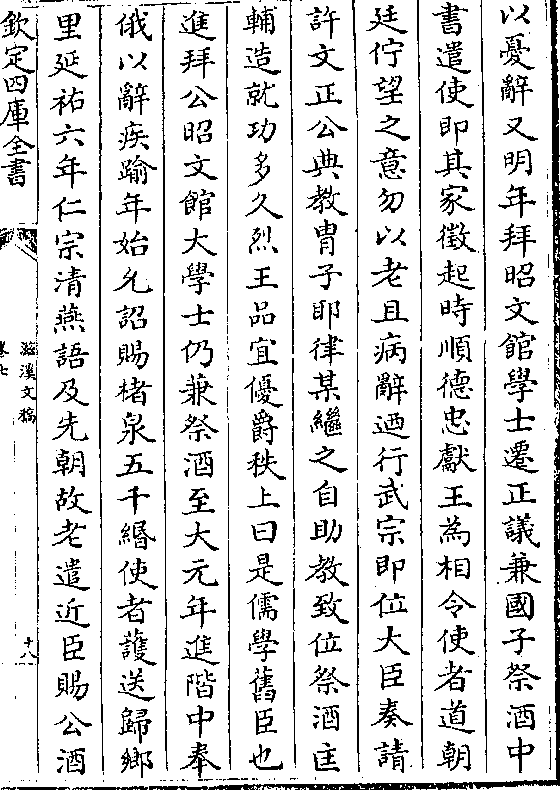 以憂辭又明年拜昭文館學士遷正議兼國子祭酒中
書遣使即其家徵起時順德忠獻王為相令使者道朝
廷佇望之意勿以老且病辭迺行武宗即位大臣奏請
許文正公典教胄子耶律某繼之自助教致位祭酒匡
輔造就功多久烈王品宜優爵秩上曰是儒學舊臣也
進拜公昭文館大學士仍兼祭酒至大元年進階中奉
俄以辭疾踰年始允詔賜楮泉五千緡使者護送歸鄉
里延祐六年仁宗清燕語及先朝故老遣近臣賜公酒
欽定四庫全書
滋溪文稿
卷七
十八